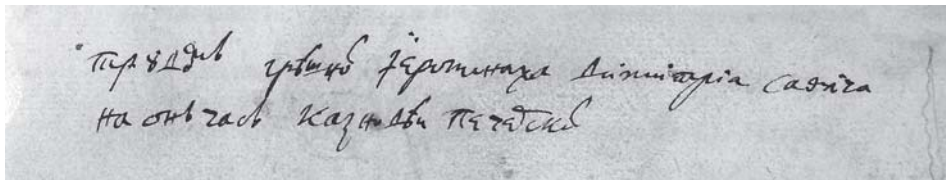 трꙋдѡв грѣшноⷢ їеромонаха Димитріа Савича
на онъ часъ казнодѣи Печеⷬскоⷢ